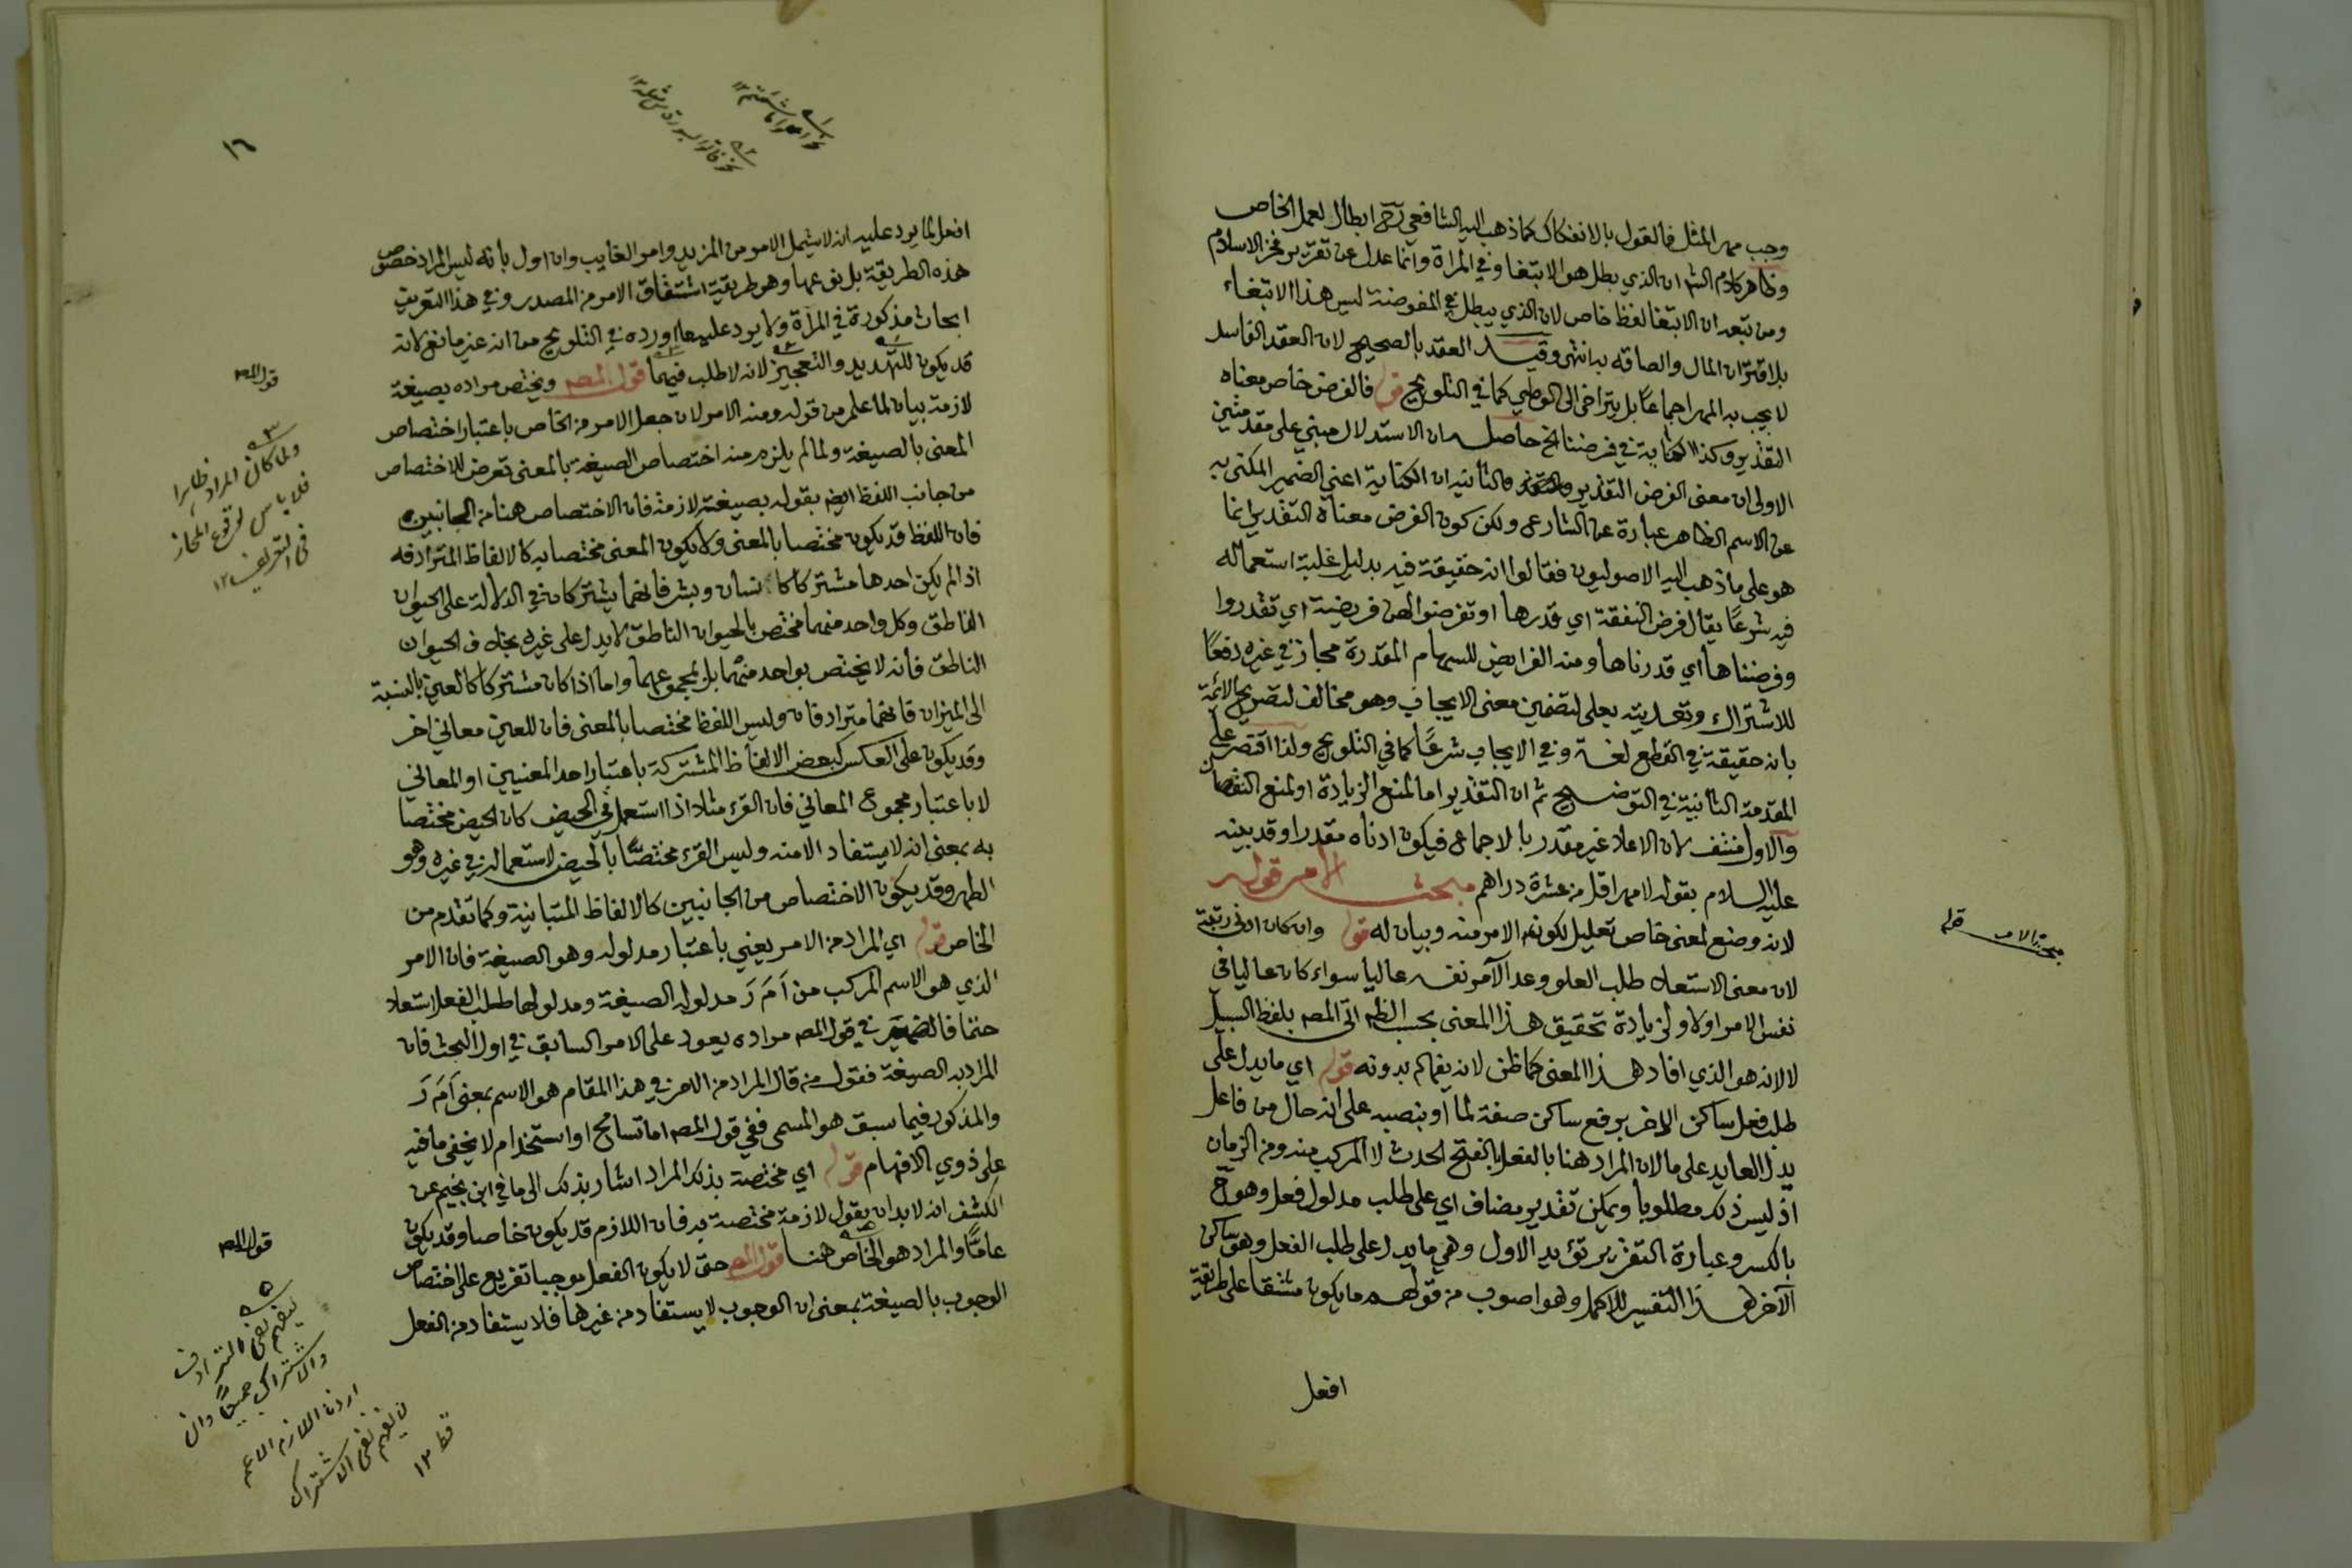 وجب مهر المثل فالقول بالانفكاك كما ذهب اليه الشافعي رح ابطال لعمل الخاص
وظاهر كلام الشم ان الذي يبطل هو الابتغا وفي المرآة وانما عدل عن تقرير فخر الاسلام
ومن تبعه ان الابتغا لفظ خاص لان الذي يبطل في المفوضة ليس هذا الابتغاء
بلا اقتران المال والصاقه به انتهى وقيد العقد بالصحيح لان العقد الفاسد
لا يجب به المهر اجماعًا بل يتراخى الى الوطي كما في التلويح قوله فالفرض خاص معناه
التقدير وكذا الكناية في فرضنا الخ حاصله ان الاستدلال مبني على مقدمتين
الاولى ان معنى الفرض التقدير والثانية ان الكناية اعني الضمير المكنى به
عن الاسم الظاهر عبارة عن الشارع ولكن كون الفرض معناه التقدير انما
هو على ما ذهب اليه الاصوليون فقالوا انه حقيقة فيه بدليل غلبة استعماله
فيه شرعًا يقال فرض النفقة اي قدرها او تفرضوا لهن فريضة اي تقدروا
وفرضناها اي قدرناها ومنه الفرايض للسهام المقدرة مجاز في غيره دفعًا
للاشتراك وتعديته بعلى لتضمين معنى الايجاب وهو مخالف لتصريح الائمة
بانه حقيقة في القطع لغة وفي الايجاب شرعًا كما في التلويح ولذا اقتصر على
المقدمة الثانية في التوضيح ثم ان التقدير اما لمنع الزيادة او لمنع النقصان
والاول منتف لان الاعلا غير مقدر بالاجماع فيكون ادناه مقدرا وقد بينه
عليه السلام بقوله لا مهر اقل من عشرة دراهم مبحث الامر قوله
لانه وضع لمعنى خاص تعليل لكونه الامر منه وبيان له قوله وان كان ادنى رتبة
لان معنى الاستعلاء طلب العلو وعد الآمر نفسه عاليا سواء كان عاليا في
نفس الامر او لا ولزيادة تحقيق هذا المعنى بحسب الظه اتى المصه بلفظ السبيل
لا لانه هو الذي افاد هذا المعنى كما ظن لانه يفهم بدونه قوله اي ما يدل على
طلب فعل ساكن الاخر برفع ساكن صفة لما او بنصبه على انه حال من فاعل
يدل العايد على ما لان المراد هنا بالفعل بالفتح الحدث لا المركب منه ومن الزمان
اذ ليس ذلك مطلوبا ويمكن تقدير مضاف اي على طلب مدلول فعل وهو ح
بالكسر وعبارة التقرير تؤيد الاول وهي ما يدل على طلب الفعل وهو ساكن
الآخر هذا التفسير للاكمل وهو اصوب من قولهم ما يكون مشتقا على طريقة
افعل
مبحث الامر قوله
١٦
افعل لما يرد عليه انه لا يشمل الامر من المزيد وامر الغايب وان اول بانه ليس المراد خصوص
هذه الطريقة بل نوعها وهو طريقة اشتقاق الامر من المصدر وفي هذا التعريف
ابحاث مذكورة في المرآة ولا يرد عليه ما اورده في التلويح من انه غير مانع لانه
قد يكون للتهديد والتعجيز لانه لا طلب فيهما قول المصه ويختص مراده بصيغة
لازمة بيان لما علم من قوله ومنه الامر لان جعل الامر من الخاص باعتبار اختصاص
المعنى بالصيغة ولما لم يلزم منه اختصاص الصيغة بالمعنى تعرض للاختصاص
من جانب اللفظ ايضم بقوله بصيغة لازمة فان الاختصاص هنا من الجانبين
فان اللفظ قد يكون مختصا بالمعنى ولا يكون المعنى مختصا به كالالفاظ المترادفه
اذا لم يكن احدها مشتركا كانسان وبشر فانهما يشتركان في الدلالة على الحيوان
الناطق وكل واحد منهما مختص بالحيوان الناطق لا يدل على غيره بخلاف الحيوان
الناطق فانه لا يختص بواحد منهما بل بمجموعهما واما اذا كان مشتركا كالعين بالنسبة
الى الميزان فانهما مترادفان وليس اللفظ مختصا بالمعنى فان للعين معاني اخر
وقد يكون على العكس كبعض الالفاظ المشتركة باعتبار احد المعنيين او المعاني
لا باعتبار مجموع المعاني فان القرء مثلا اذا استعمل في الحيض كان الحيض مختصا
به بمعنى انه لا يستفاد الا منه وليس القرء مختصًا بالحيض لاستعماله في غيره وهو
الطهر وقد يكون الاختصاص من الجانبين كالالفاظ المتباينة وكما تقدم من
الخاص قوله اي المراد من الامر يعني باعتبار مدلوله وهو الصيغة فان الامر
الذي هو الاسم المركب من اَ مَ رَ مدلوله الصيغة ومدلولها طلب الفعل استعلاء
حتما فالضمير في قول المصه مراده يعود على الامر السابق في اول البحث فان
المراد به الصيغة فقول من قال المراد من الامر في هذا المقام هو الاسم بمعنى اَ مَ رَ
والمذكور فيما سبق هو المسمى ففي قول المصه اما تسامح او استخدام لا يخفى ما فيه
على ذوي الافهام قوله اي مختصة بذلك المراد اشار بذلك الى ما في ابن نجيم عن
الكشف انه لا بد ان يقول لازمة مختصة به فان اللازم قد يكون خاصا وقد يكون
عامًّا والمراد هو الخاص هنا قول المصه حتى لا يكون الفعل موجبا تفريع على اختصاص
الوجوب بالصيغة بمعنى ان الوجوب لا يستفاد من غيرها فلا يستفاد من الفعل
قول المصه
ولما كان المراد ظاهرا
فلا باس لوقوع المجاز
في التعريف ١٢
قول المصه
ليفهم نفي الترادف
والاشتراك جميعًا وان
اردنا اللازم الاعم
لا يفهم نفي الاشتراك
قط ١٢